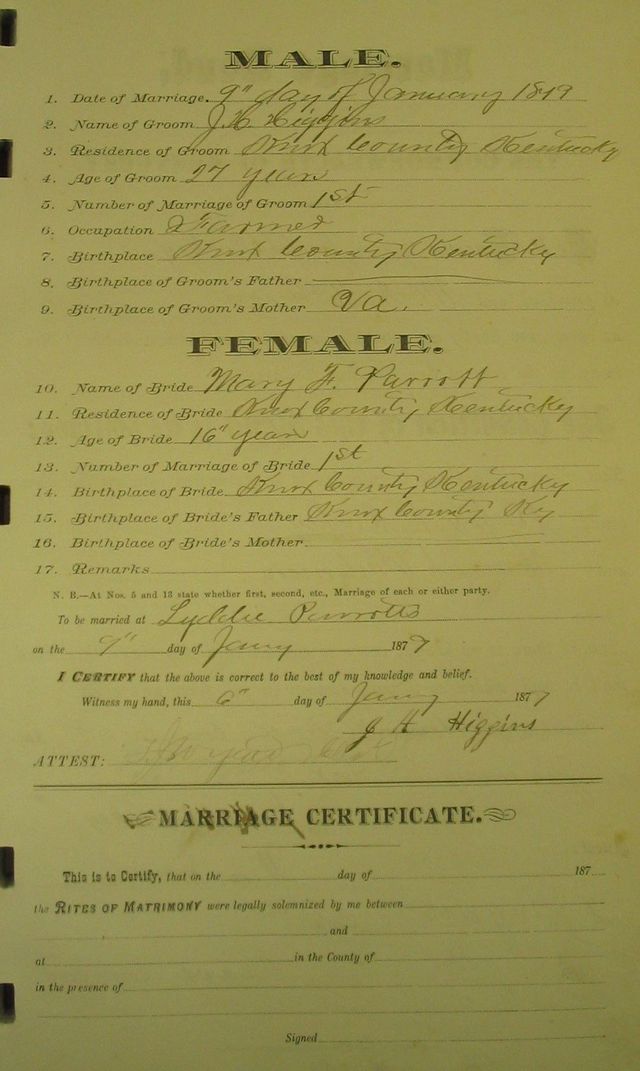 MALE.
1. Date of Marriage. 9" day of January 1879
2. Name of Groom J H Higgins
3. Residence of Groom Knox County Kentucky
4. Age of Groom 27 years
5. Number of Marriage of Groom 1st
6. Occupation Farmer
7. Birthplace Knox County Kentucky
8. Birthplace of Groom's Father
9. Birthplace of Groom's Mother Va.
FEMALE.
10. Name of Bride Mary F. Parrott
11. Residence of Bride Knox County Kentucky
12. Age of Bride 16" years
13. Number of Marriage of Bride 1st
14. Birthplace of Bride Knox County Kentucky
15. Birthplace of Bride's Father Knox County Ky
16. Birthplace of Bride's Mother.
17. Remarks
N. B.—At Nos. 5 and 13 state whether first, second, etc., Marriage of each or either party.
To be married at Lyddie Parrotts
on the 9" day of Jany 1879
I CERTIFY that the above is correct to the best of my knowledge and belief.
Witness my hand, this 6" day of Jany 187
J H Higgins
ATTEST:
MARRIAGE CERTIFICATE.
This is to Certify, that on the day of 187
the RITES OF MATRIMONY were legally solemnized by me between
and
at in the County of
in the presence of
Signed